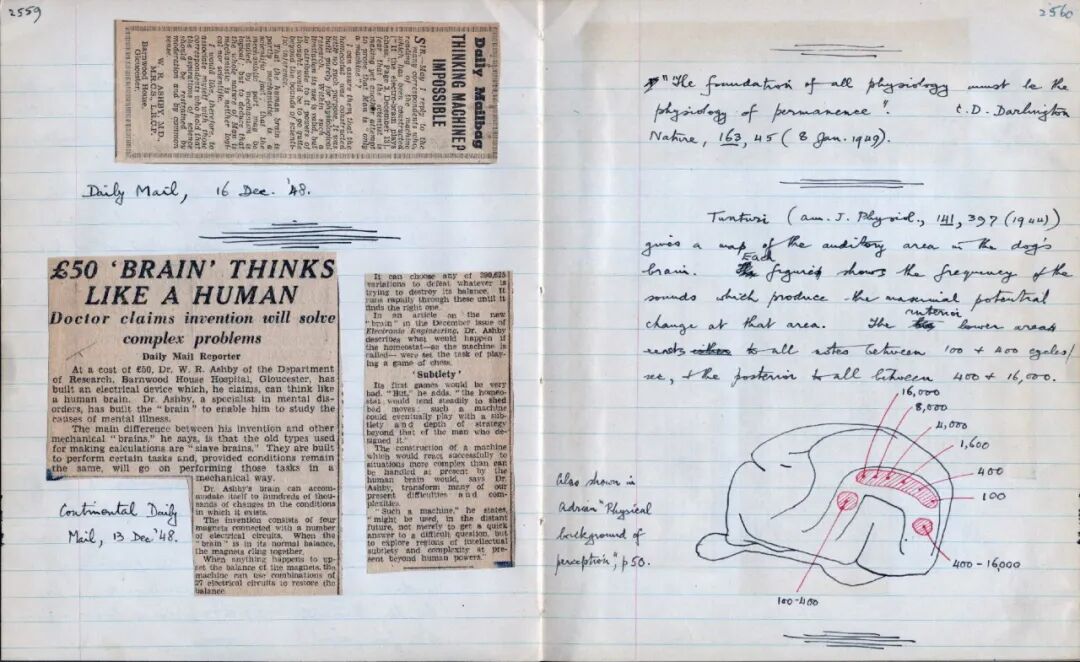 2559
Daily Mailbag
THINKING MACHINE?
IMPOSSIBLE
SIR.—May I reply to the
W. R. ASHBY, M.D.,
M.R.C.S., L.R.C.P.
Barnwood House,
Gloucester.
Daily Mail, 16 Dec. '48.
£50 'BRAIN' THINKS
LIKE A HUMAN
Doctor claims invention will solve
complex problems
Daily Mail Reporter
At a cost of £50, Dr. W. R. Ashby of the Department
of Research, Barnwood House Hospital, Gloucester, has
built an electrical device which, he claims, can think like
a human brain. Dr. Ashby, a specialist in mental dis-
orders, has built the "brain" to enable him to study the
causes of mental illness.
The main difference between his invention and other
mechanical "brains," he says, is that the old types used
for making calculations are "slave brains." They are built
to perform certain tasks and, provided conditions remain
the same, will go on performing those tasks in a
mechanical way.
Dr. Ashby's brain can accom-
modate itself to hundreds of thou-
sands of changes in the conditions
in which it exists.
The invention consists of four
magnets connected with a number
of electrical circuits. When the
"brain" is in its normal balance,
the magnets cling together.
When anything happens to up-
set the balance of the magnets, the
machine can use combinations of
27 electrical circuits to restore the
balance.
It can choose any of 390,625
variations to defeat whatever is
trying to destroy its balance. It
runs rapidly through these until it
finds the right one.
In an article on the new
"brain" in the December issue of
Electronic Engineering, Dr. Ashby
describes what would happen if
the homeostat—as the machine is
called—were set the task of play-
ing a game of chess.
'Subtlety'
Its first games would be very
bad. "But," he adds, "the homeo-
stat would tend steadily to shed
bad moves; such a machine
could eventually play with a sub-
tlety and depth of strategy
beyond that of the man who de-
signed it."
The construction of a machine
which would react successfully to
situations more complex than can
be handled at present by the
human brain would, says Dr.
Ashby, transform many of our
present difficulties and com-
plexities.
"Such a machine," he states,
"might be used, in the distant
future, not merely to get a quick
answer to a difficult question, but
to explore regions of intellectual
subtlety and complexity at pre-
sent beyond human powers."
Continental Daily
Mail, 13 Dec '48.
2560
"The foundation of all physiology must be the
physiology of permanence". C.D. Darlington
Nature, 163, 45 (8 Jan. 1949).
Tunturi (Am. J. Physiol., 141, 397 (1944)
gives a map of the auditory area in the dog's
brain. Each figure shows the frequency of the
sounds which produce the maximal potential
change at that area. The anterior lower area
to all notes between 100 + 400 cycles/
sec, + the posterior to all between 400 + 16,000.
16,000
8,000
4,000
1,600
400
100
400-16,000
100-400
Also shown in
Adrian "Physical
background of
perception", p50.